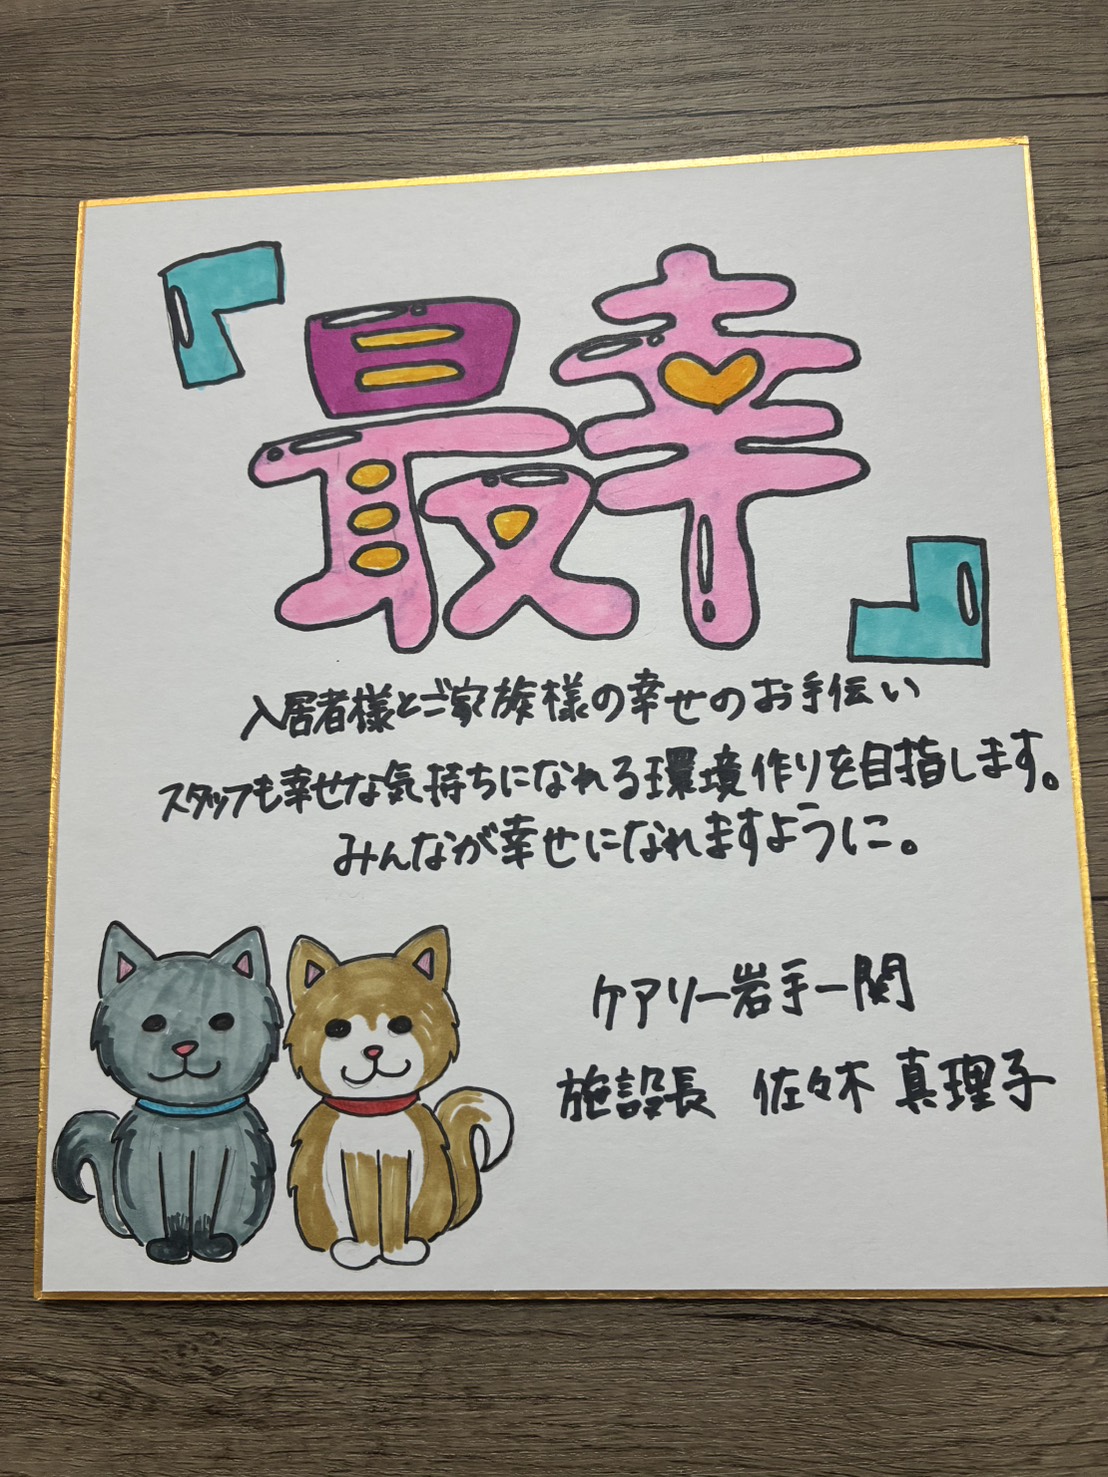 『最幸』
入居者様とご家族様の幸せのお手伝い
スタッフも幸せな気持ちになれる環境作りを目指します。
みんなが幸せになれますように。
ケアリー岩手一関
施設長 佐々木 真理子